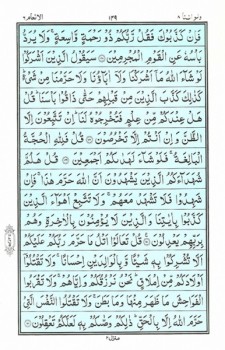 ولو اننا ۸ ۱۴۹ الانعام ۶
فَاِنْ كَذَّبُوْكَ فَقُلْ رَّبُّكُمْ ذُوْ رَحْمَةٍ وَّاسِعَةٍ ۚ وَلَا يُرَدُّ
بَاْسُهٗ عَنِ الْقَوْمِ الْمُجْرِمِيْنَ سَيَقُوْلُ الَّذِيْنَ اَشْرَكُوْا
لَوْ شَآءَ اللّٰهُ مَاۤ اَشْرَكْنَا وَلَاۤ اٰبَآؤُنَا وَلَا حَرَّمْنَا مِنْ شَيْءٍ ؕ
كَذٰلِكَ كَذَّبَ الَّذِيْنَ مِنْ قَبْلِهِمْ حَتّٰى ذَاقُوْا بَاْسَنَا ؕ قُلْ
هَلْ عِنْدَكُمْ مِّنْ عِلْمٍ فَتُخْرِجُوْهُ لَنَا ؕ اِنْ تَتَّبِعُوْنَ اِلَّا
الظَّنَّ وَاِنْ اَنْتُمْ اِلَّا تَخْرُصُوْنَ قُلْ فَلِلّٰهِ الْحُجَّةُ
الْبَالِغَةُ ۚ فَلَوْ شَآءَ لَهَدٰىكُمْ اَجْمَعِيْنَ قُلْ هَلُمَّ
شُهَدَآءَكُمُ الَّذِيْنَ يَشْهَدُوْنَ اَنَّ اللّٰهَ حَرَّمَ هٰذَا ۚ فَاِنْ
شَهِدُوْا فَلَا تَشْهَدْ مَعَهُمْ ۚ وَلَا تَتَّبِعْ اَهْوَآءَ الَّذِيْنَ
كَذَّبُوْا بِاٰيٰتِنَا وَالَّذِيْنَ لَا يُؤْمِنُوْنَ بِالْاٰخِرَةِ وَهُمْ
بِرَبِّهِمْ يَعْدِلُوْنَ قُلْ تَعَالَوْا اَتْلُ مَا حَرَّمَ رَبُّكُمْ عَلَيْكُمْ
اَلَّا تُشْرِكُوْا بِهٖ شَيْـًٔا وَّبِالْوَالِدَيْنِ اِحْسَانًا ۚ وَلَا تَقْتُلُوْۤا
اَوْلَادَكُمْ مِّنْ اِمْلَاقٍ ؕ نَحْنُ نَرْزُقُكُمْ وَاِيَّاهُمْ ۚ وَلَا تَقْرَبُوا
الْفَوَاحِشَ مَا ظَهَرَ مِنْهَا وَمَا بَطَنَ ۚ وَلَا تَقْتُلُوا النَّفْسَ الَّتِيْ
حَرَّمَ اللّٰهُ اِلَّا بِالْحَقِّ ؕ ذٰلِكُمْ وَصّٰىكُمْ بِهٖ لَعَلَّكُمْ تَعْقِلُوْنَ
منزل ۲